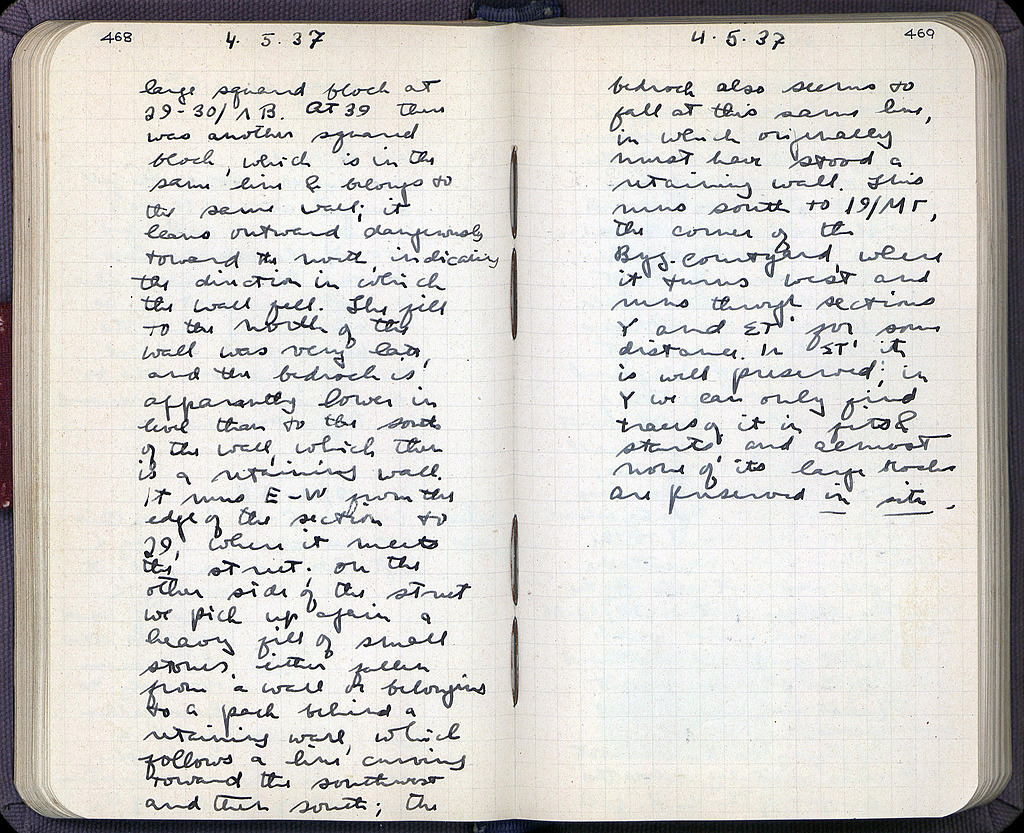 468
4. 5. 37
large squared block at
29-30/ΛB. At 39 there
was another squared
block, which is in the
same line & belongs to
the same wall; it
leans outward dangerously
toward the north, indicating
the direction in which
the wall fell. The fill
to the north of the
wall was very late,
and the bedrock is
apparantly lower in
level than to the south
of the wall, which then
is a retaining wall.
It runs E-W from the
edge of the section to
29, where it meets
the street; on the
other side of the street
we pick up again a
heavy fill of small
stones, either fallen
from a wall or belonging
to a pack behind a
retaining wall, which
follows a line curving
toward the southwest
and then south; the
4. 5. 37
469
bedrock also seems to
fall at this same line,
in which originally
must have stood a
retaining wall. This
runs south to 19/ΜΓ,
the corner of the
Byz. courtyard, where
it turns west and
runs through sections
Υ and ΣΤ' for some
distance. In ΣΤ' it
is well preserved; in
Υ we can only find
traces of it in fits &
starts, and almost
none of its large blocks
are preserved in situ.